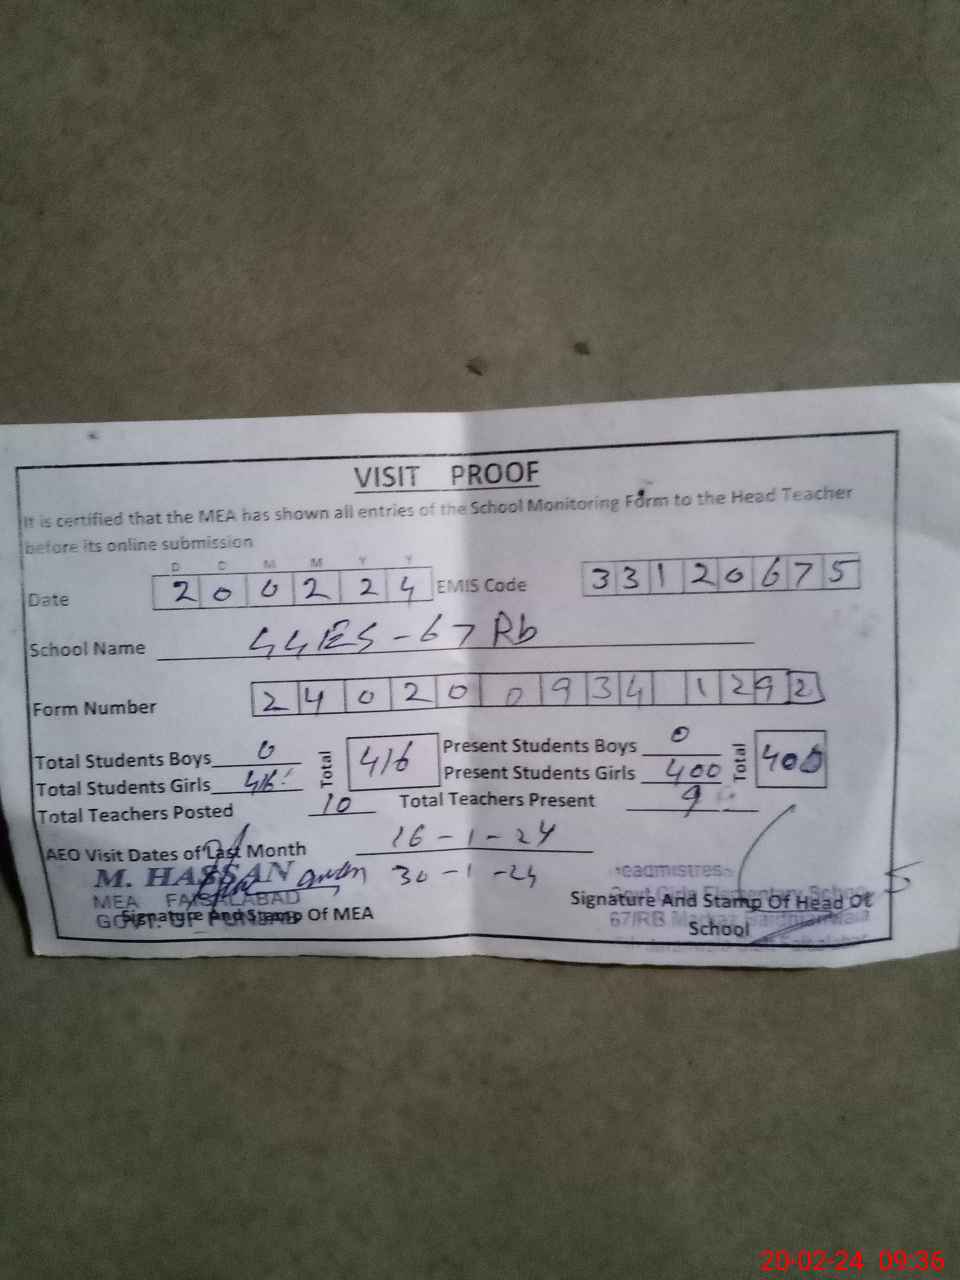 VISIT PROOF
It is certified that the MEA has shown all entries of the School Monitoring Form to the Head Teacher
before its online submission
D D M M Y Y
Date 200224 EMIS Code 33120675
School Name GGES-67 Rb
Form Number 2402009341292
Total Students Boys 0 Total 416 Present Students Boys 0 Total 400
Total Students Girls 416 Present Students Girls 400
Total Teachers Posted 10 Total Teachers Present 9
AEO Visit Dates of Last Month 16-1-24
30-1-24
M. HASSAN
MEA FAISALABAD
GOVT. OF PUNJAB
Signature And Stamp Of MEA
Headmistress
Govt Girls Elementary School
67/RB
Signature And Stamp Of Head Of
School
20-02-24 09:36